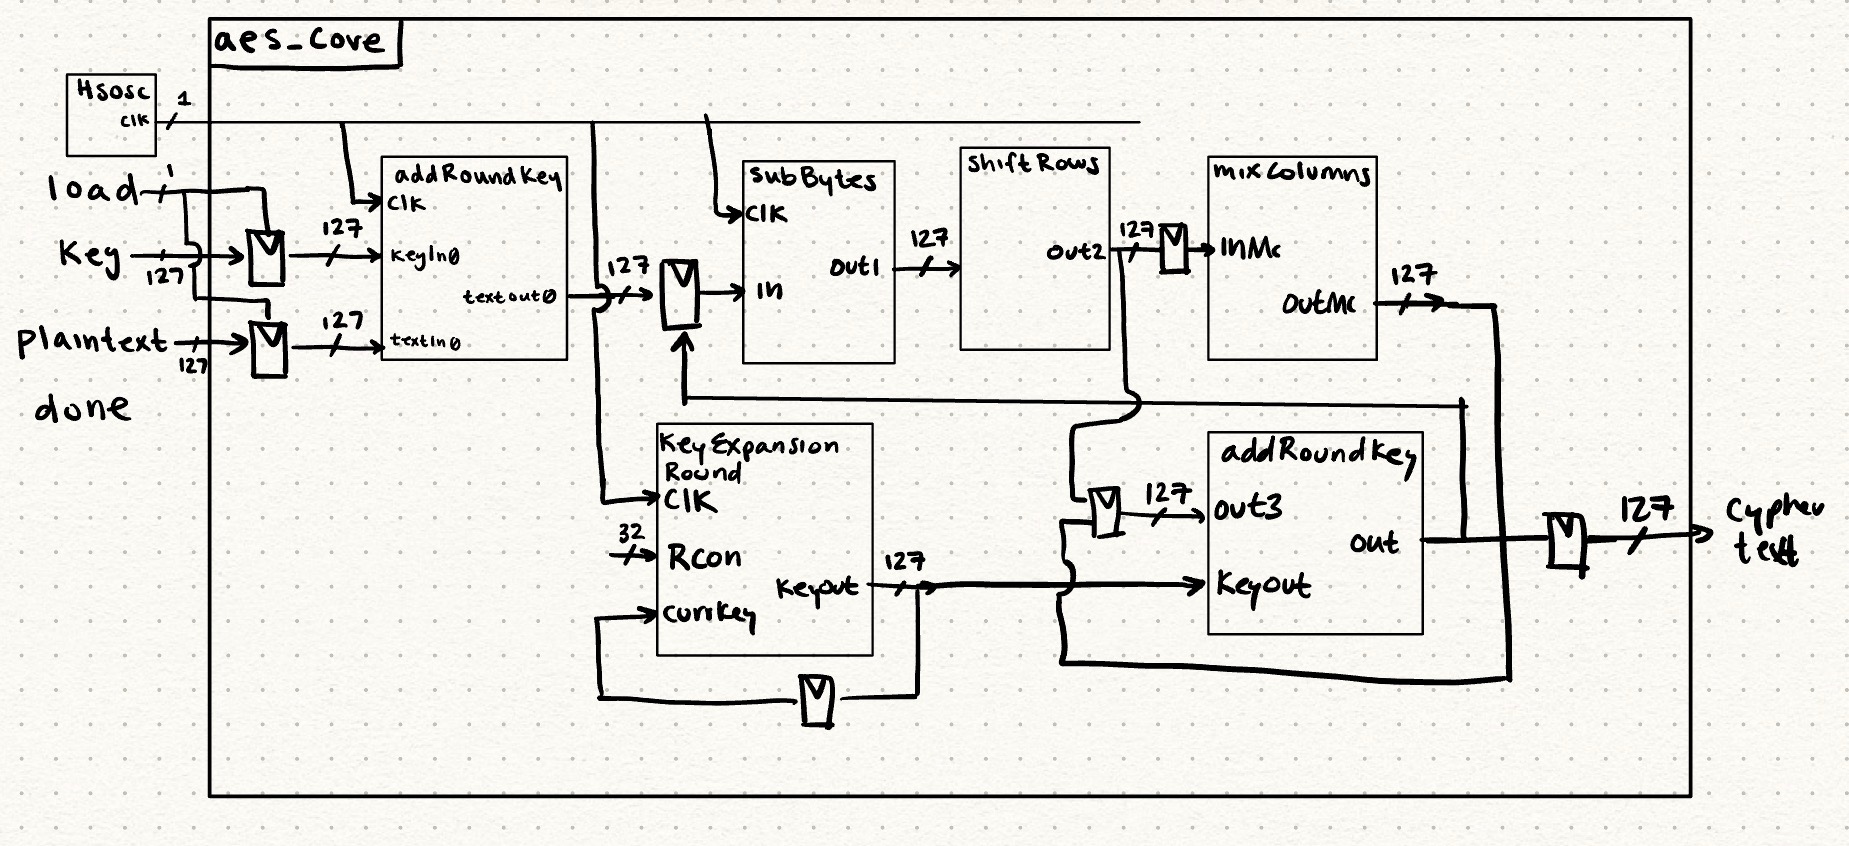 aes_core
Hsosc
clk
1
load
1
Key
127
plaintext
127
done
127
127
addRoundKey
Clk
KeyIn0
textout0
textIn0
127
SubBytes
Clk
In
Out1
127
ShiftRows
Out2
127
mixColumns
InMc
OutMc
127
KeyExpansion
Round
Clk
32
Rcon
Currkey
Keyout
127
127
addRoundKey
Out3
Out
Keyout
127
Cypher
text